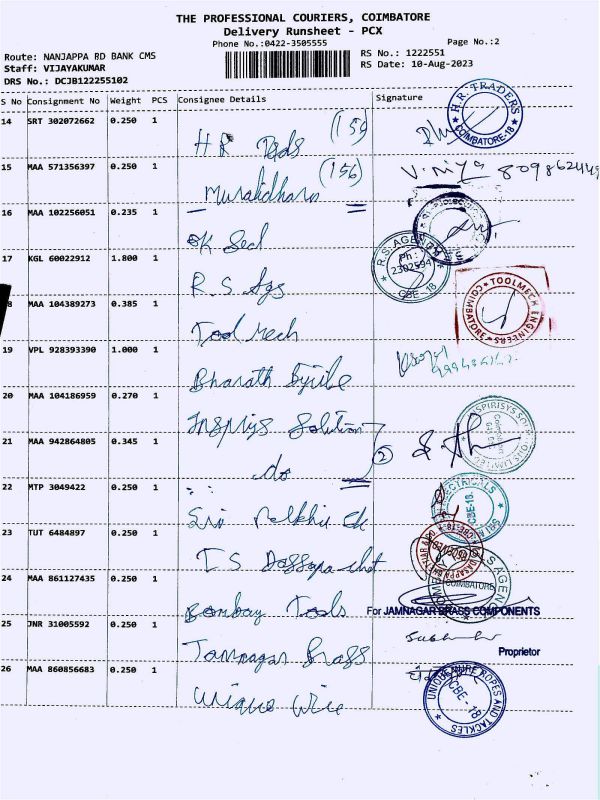 THE PROFESSIONAL COURIERS, COIMBATORE
Delivery Runsheet - PCX
Phone No.:0422-3505555
Page No.:2
Route: NANJAPPA RD BANK CMS
RS No.: 1222551
Staff: VIJAYAKUMAR
RS Date: 10-Aug-2023
DRS No.: DCJB122255102
S No Consignment No Weight PCS Consignee Details Signature
14 SRT 302072662 0.250 1
H.R. TRADERS
COIMBATORE-18
15 MAA 571356397 0.250 1
Muralidharan (156)
16 MAA 102256051 0.235 1
17 KGL 60022912 1.800 1
R.S. Ags
R.S. AGENC
Ph:
2302594
CBE-18
8 MAA 104389273 0.385 1
Tool Mech
TOOLMECH ENGINEERS
COIMBATORE
19 VPL 928393390 1.000 1
Bharath
20 MAA 104186959 0.270 1
Solution
21 MAA 942864805 0.345 1
do
2
22 MTP 3049422 0.250 1
Sri
ELECTRICALS
CBE-18.
23 TUT 6484897 0.250 1
T.S.
24 MAA 861127435 0.250 1
Bombay Tools
COIMBATORE
For JAMNAGAR BRASS COMPONENTS
25 JNR 31005592 0.250 1
Jamnagar Brass
Proprietor
26 MAA 860856683 0.250 1
Unique Wire
UNIQUE WIRE ROPES AND TACKLES
CBE - 18